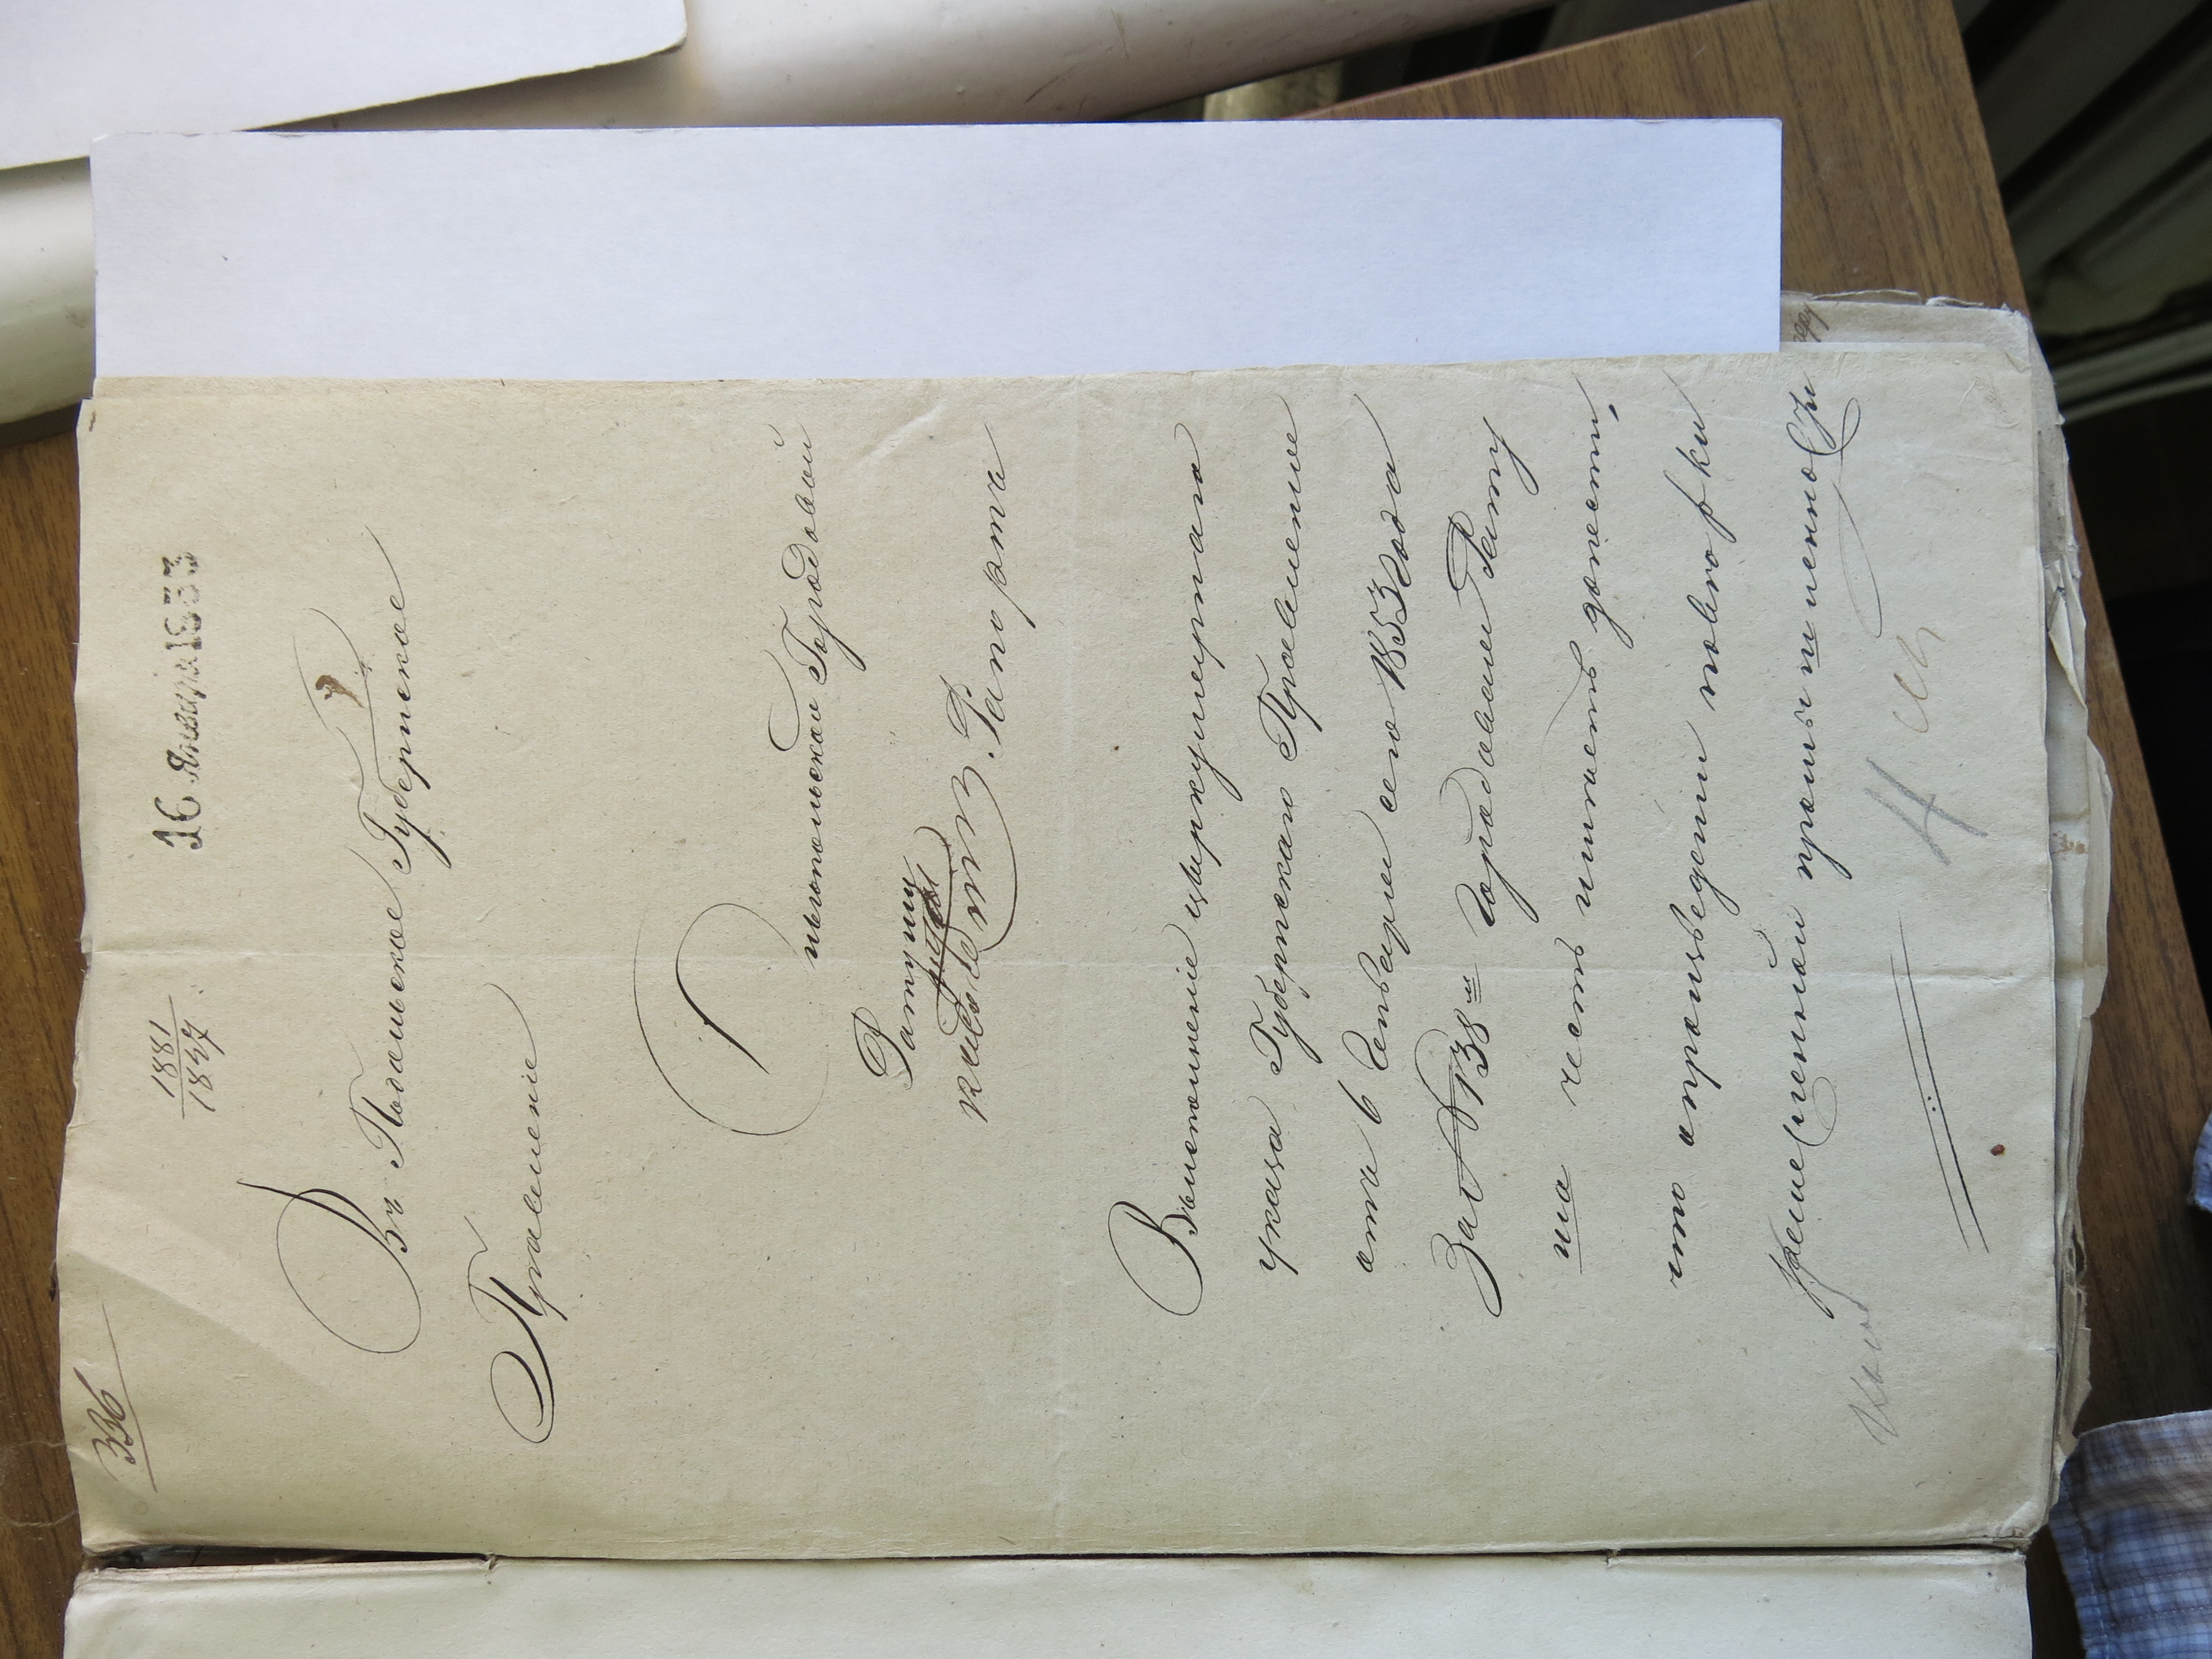 336
1881
1847
16 Января 1853
Въ Подольское Губернское
Правленіе
Ольгопольской Городовой
Ратуши
Рапортъ
Въисполненіе циркулярнаго
указа Губернскаго Правленія
отъ 6 Генваря сего 1853 года
За № 138 м Городовая Рату
ша честь имѣетъ донести,
что опроизведеніи повѣрки
ремесленной промышленности